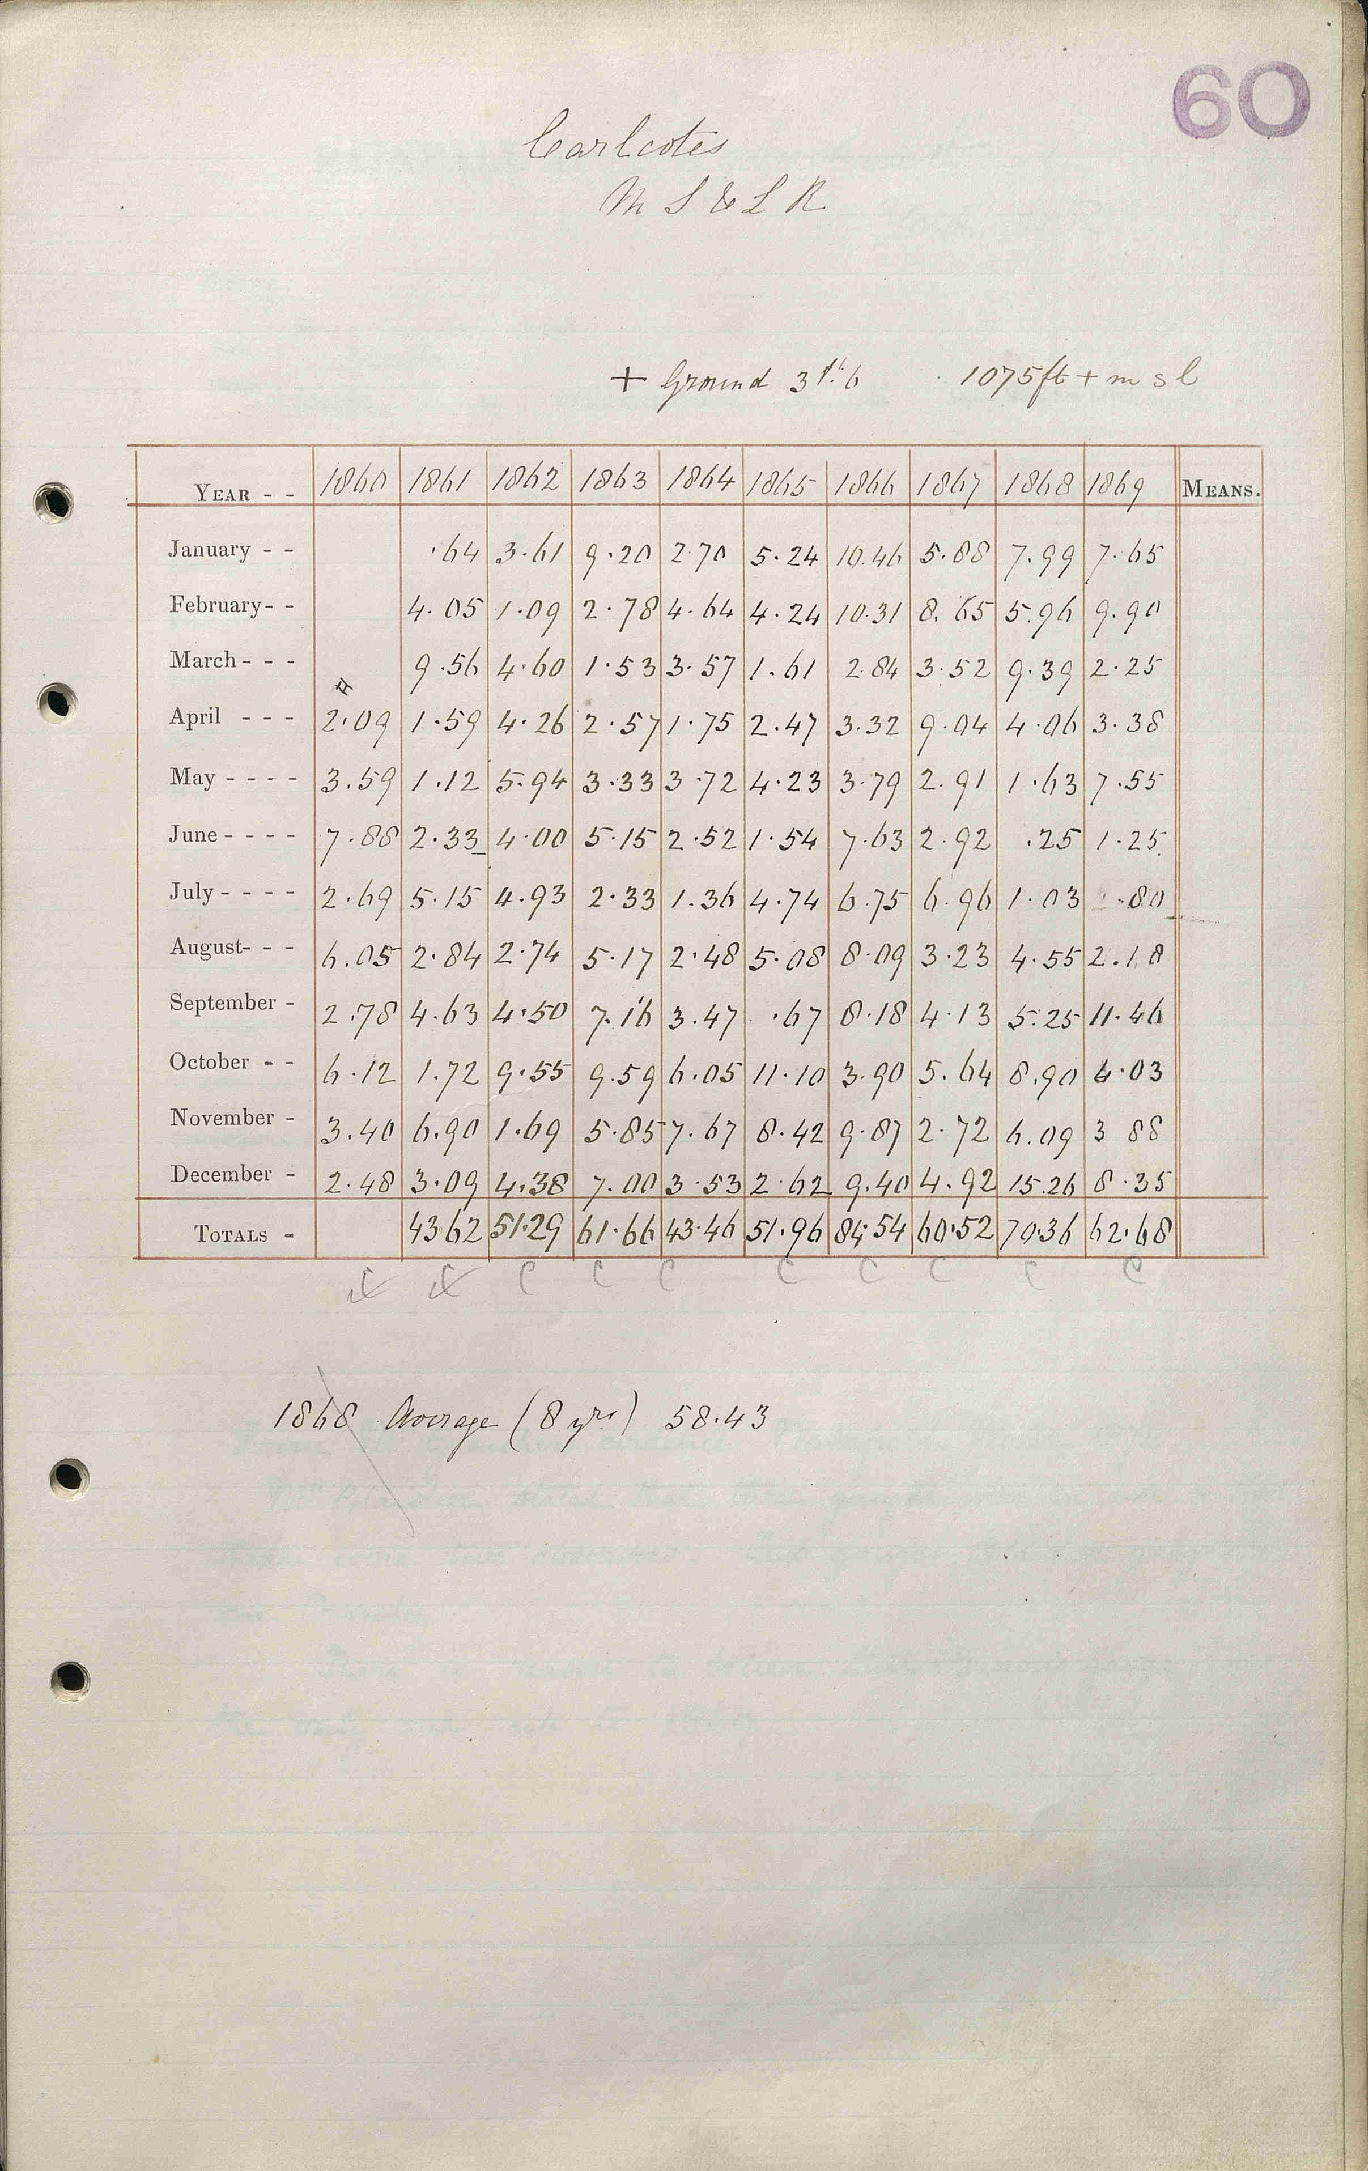 60
Carlcotes
M S & L R
+ Ground 3ft.6 1075ft + m s l
YEAR - - 1860 1861 1862 1863 1864 1865 1866 1867 1868 1869 MEANS.
January - - ·64 3·61 9·20 2·70 5·24 10·46 5·88 7·99 7·65
February- - 4·05 1·09 2·78 4·64 4·24 10·31 8·65 5·96 9·90
March- - - 9·56 4·60 1·53 3·57 1·61 2·84 3·52 9·39 2·25
April - - - 2·09 1·59 4·26 2·57 1·75 2·47 3·32 9·04 4·06 3·38
May - - - - 3·59 1·12 5·94 3·33 3·72 4·23 3·79 2·91 1·63 7·55
June- - - - 7·88 2·33 4·00 5·15 2·52 1·54 7·63 2·92 ·25 1·25
July- - - - 2·69 5·15 4·93 2·33 1·36 4·74 6·75 6·96 1·03 ·80
August- - - 6·05 2·84 2·74 5·17 2·48 5·08 8·09 3·23 4·55 2·18
September - 2·78 4·63 4·50 7·16 3·47 ·67 8·18 4·13 5·25 11·46
October - - 6·12 1·72 9·55 9·59 6·05 11·10 3·90 5·64 8·90 4·03
November - 3·40 6·90 1·69 5·85 7·67 8·42 9·87 2·72 6·09 3 88
December - 2·48 3·09 4·38 7·00 3·53 2·62 9·40 4·92 15·26 8·35
TOTALS - 43·62 51·29 61·66 43·46 51·96 84·54 60·52 70·36 62·68
C C C C C C C C
1868 Average (8 yrs) 58·43